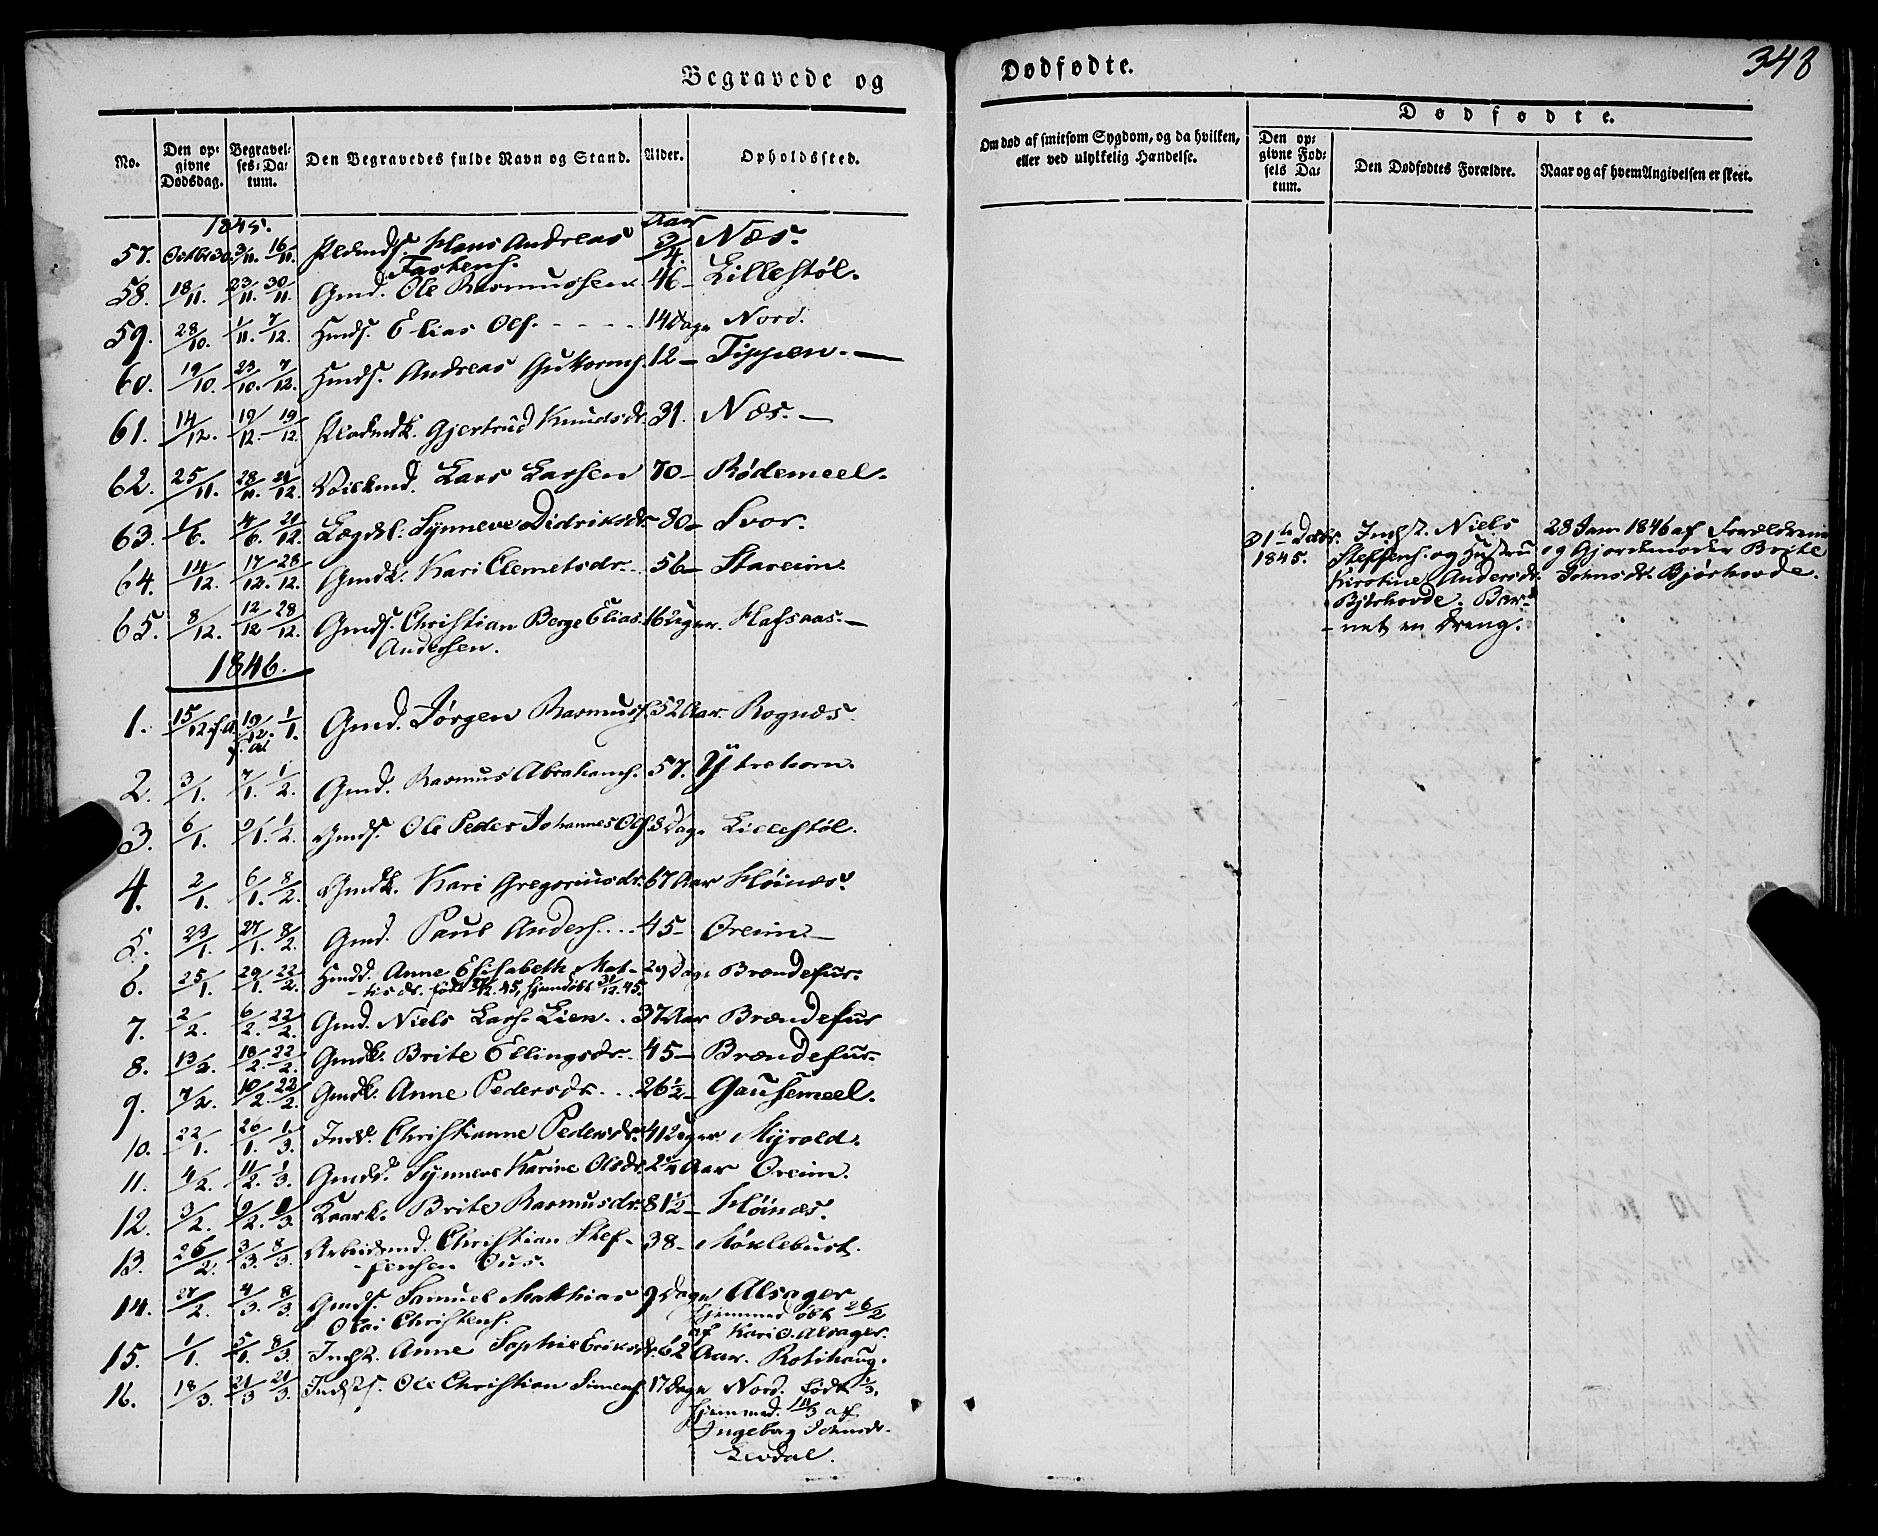 Begravede og
Dødfødte.
348
No.
Den opgivne Dødsdag.
Begravelses-Datum.
Den Begravedes fulde Navn og Stand.
Alder.
Opholdssted.
Om død af smitsom Sygdom, og da hvilken, eller ved ulykkelig Hændelse.
Dødfødte.
Den opgivne Fødsels Datum.
Den Dødfødtes Forældre.
Naar og af hvem Angivelsen er skeet.
1845.
Aar
57. Octbr 30. 3/11. 16/11. Hans Andreas 3/4. Næs.
Fastens.
58. 18/11. 23/11. 30/11. Gmd. Ole Rasmussen 46 - Lillestøl.
59. 28/10. 1/11. 7/12. Hmds. Elias Ols. - - - - 14 Dage Nord.
60. 19/10. 23/10. 7/12. Hmds. Andreas Guttorms. 12 - Tippen. -
61. 14/12. 19/12. 19/12. Gjertrud Knudsdr. 31. Næs. -
62. 25/11. 28/11. 21/12. Lars Larsen 70 - Rødemeel.
63. 1/6. 4/6. 21/12. Lægdsl. Synneve Didriksdr. 80 - Svor.
64. 14/12. 17/12. 28/12. Gmdk. Kari Clemetsdr. 56 - Stareim.
65. 8/12. 12/12 28/12. Gmds. Christian Berge Elias 16 Uger. Hafsaas. -
Andersen.
1846.
1. 15/12 f.A. 19/12. f.A. 1/1. Gmd. Jørgen Rasmuss. 52 Aar. Rognæs.
2. 3/1. 7/1. 1/2. Gmd. Rasmus Abrahams. 57. Ytrehorn.
3. 6/1. 9/1. 1/2. Gmds. Ole Peder Johannes Ols. 8 Dage Lillestøl.
4. 2/1. 6/1. 8/2. Gmdk. Kari Gregoriusdr. 67 Aar Høinæs.
5. 23/1. 27/1. 8/2. Gmd. Paul Anders. ... 45 - Øreim. -
6. 25/1. 29/1. 22/2. Hmdd. Anne Elisabeth Mat- 29 Dage Brændefur.
-hisdr. født /12. 45, hjemdøbt 31/12. 45.
7. 2/2. 6/2. 22/2. Gmd. Niels Lars. Lien. .. 37 Aar Brændefur
8. 13/2. 18/2. 22/2. Gmdk. Brite Ellingsdr. 45 - Brændefur.
9. 7/2. 10/2. 22/2. Gmdk. Anne Pedersdr. ... 26 1/2 - Gausemeel.
10. 22/1. 26/1. 1/3. Christianne Pedersdr. 41 Uger Myrold.
11. 4/2. 11/2. 1/3. Gmdd. Synneve Karine Olsdr. 2 1/4 Aar Øreim.
12. 3/2. 9/2. 8/3. Kaark. Brite Rasmusdr. 81 1/2 - Høinæs.
13. 26/2. 3/3. 8/3. Arbeidsmd. Christian Stef- 38 - Møklebust.
-fensen Ous.
14. 27/2. 4/3. 8/3. Gmds. Samuel Mathias 9 Dage Alsager
Olai Christens. hjemmed. døbt 26/2
af Kari O. Alsager.
15. 1/1. 5/1. 8/3. Indsk. Anne Sophie Eriksdr. 62 Aar. Rotihaug.
16. 18/3. 21/3 21/3. Indsts. Ole Christian Simens. 17 Dage Nord. født 1/3,
hjemmed. 11/3 af
Ingeborg Johnsdr.
Levdal.
31te Decbr.
1845.
Indst. Niels
Steffens. og Hustru
Andersdr.
Bjørhovde. Bar-
-net en Dreng.
28 Jan. 1846 af Forældrene
og Gjordemoder Brite
Johnsdr. Bjørhovde.